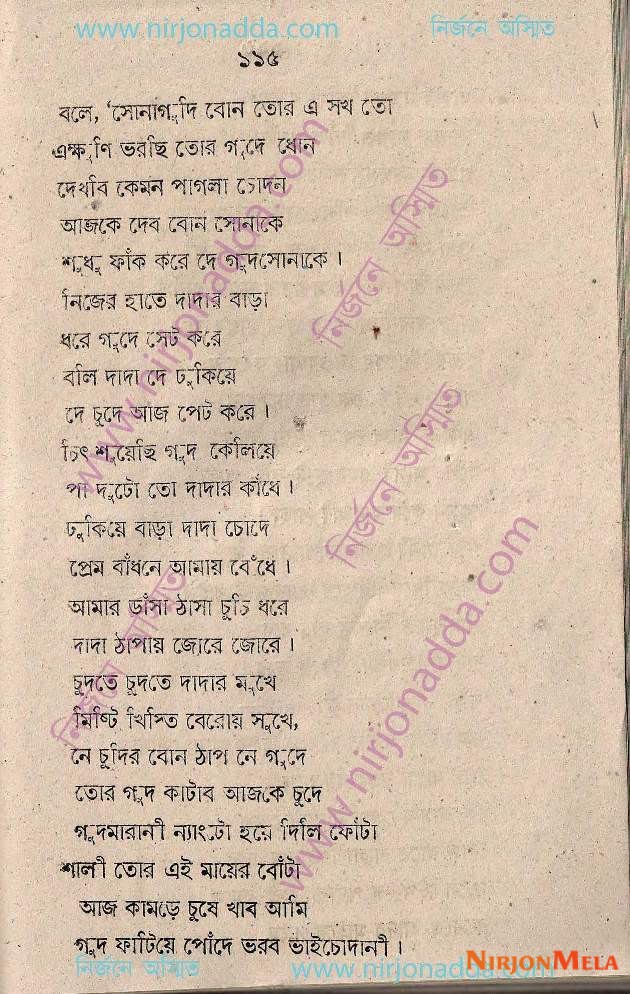 www.nirjonadda.com নির্জনে অস্মিত
১১৫
বলে, 'সোনাগুদি বোন তোর এ সখ তো
এক্ষুণি ভরছি তোর গুদে ধোন
দেখবি কেমন পাগলা চোদন
আজকে দেব বোন সোনাকে
শুধু ফাঁক করে দে গুদসোনাকে ।
নিজের হাতে দাদার বাড়া
ধরে গুদে সেট করে
বলি দাদা দে ঢুকিয়ে
দে চুদে আজ পেট করে ।
চিৎ শুয়েছি গুদ কেলিয়ে
পা দুটো তো দাদার কাঁধে ।
ঢুকিয়ে বাড়া দাদা চোদে
প্রেম বাঁধনে আমায় বেঁধে ।
আমার ডাঁসা ঠাসা চুচি ধরে
দাদা ঠাপায় জোরে জোরে ।
চুদতে চুদতে দাদার মুখে
মিষ্টি খিস্তি বেরোয় সুখে,
নে চুদির বোন ঠাপ নে গুদে
তোর গুদ কাটাব আজকে চুদে
গুদমারানী ন্যাংটো হয়ে দিলি ফোঁটা
শালী তোর এই মায়ের বোঁটা
আজ কামড়ে চুষে খাব আমি
গুদ ফাটিয়ে পোঁদে ভরব ভাইচোদানী ।
নির্জনে অস্মিত www.nirjonadda.com
NIRJONMELA
www.nirjonadda.com
নির্জনে অস্মিত
নির্জনে অস্মিত
www.nirjonadda.com
নির্জনে অস্মিত